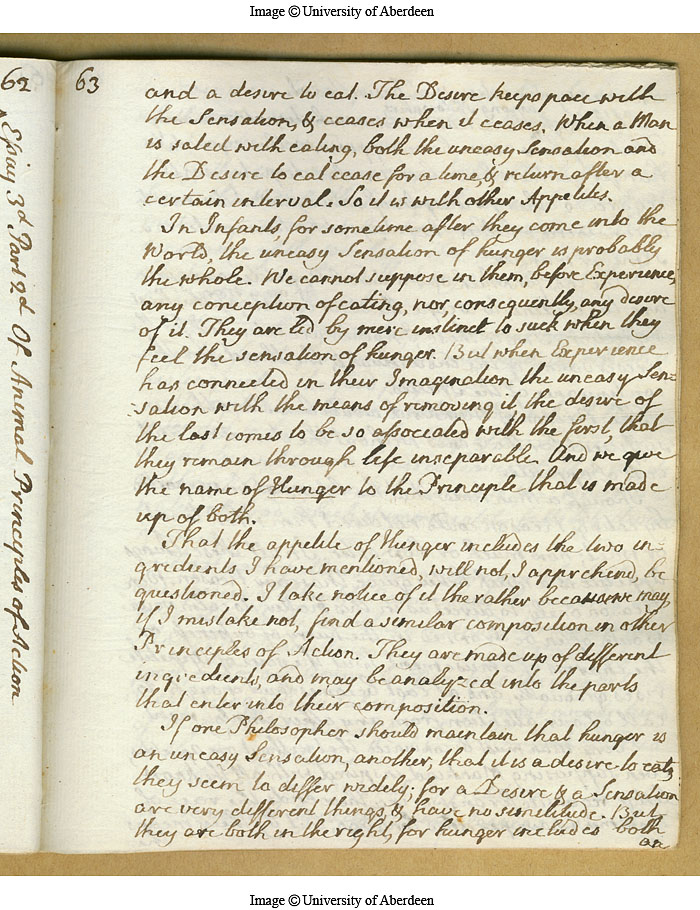 Image © University of Aberdeen
62
Essay 3d Part 2d Of Animal Principles of Action
63
and a desire to eat. The Desire keeps pace with
the Sensation, & ceases when it ceases. When a Man
is sated with eating, both the uneasy Sensation and
the Desire to eat cease for a time, & return after a
certain interval. So it is with other Appetites.
In Infants, for some time after they come into the
World, the uneasy Sensation of hunger is probably
the whole. We cannot suppose in them, before Experience,
any conception of eating, nor, consequently, any desire
of it. They are led by mere instinct to suck when they
feel the sensation of hunger. But when Experience
has connected in their Imagination the uneasy Sen=
=sation with the means of removing it, the desire of
the last comes to be so associated with the first, that
they remain through life inseparable. And we give
the name of Hunger to the Principle that is made
up of both.
That the appetite of Hunger includes the two in=
gredients I have mentioned, will not, I apprehend, be
questioned. I take notice of it the rather because we may,
if I mistake not, find a similar composition in other
Principles of Action. They are made up of different
ingredients, and may be analyzed into the parts
that enter into their composition.
If one Philosopher should maintain that hunger is
an uneasy Sensation, another, that it is a desire to eat;
they seem to differ widely; for a Desire & a Sensation
are very different things, & have no similitude. But
they are both in the right, for hunger includes both
an
Image © University of Aberdeen